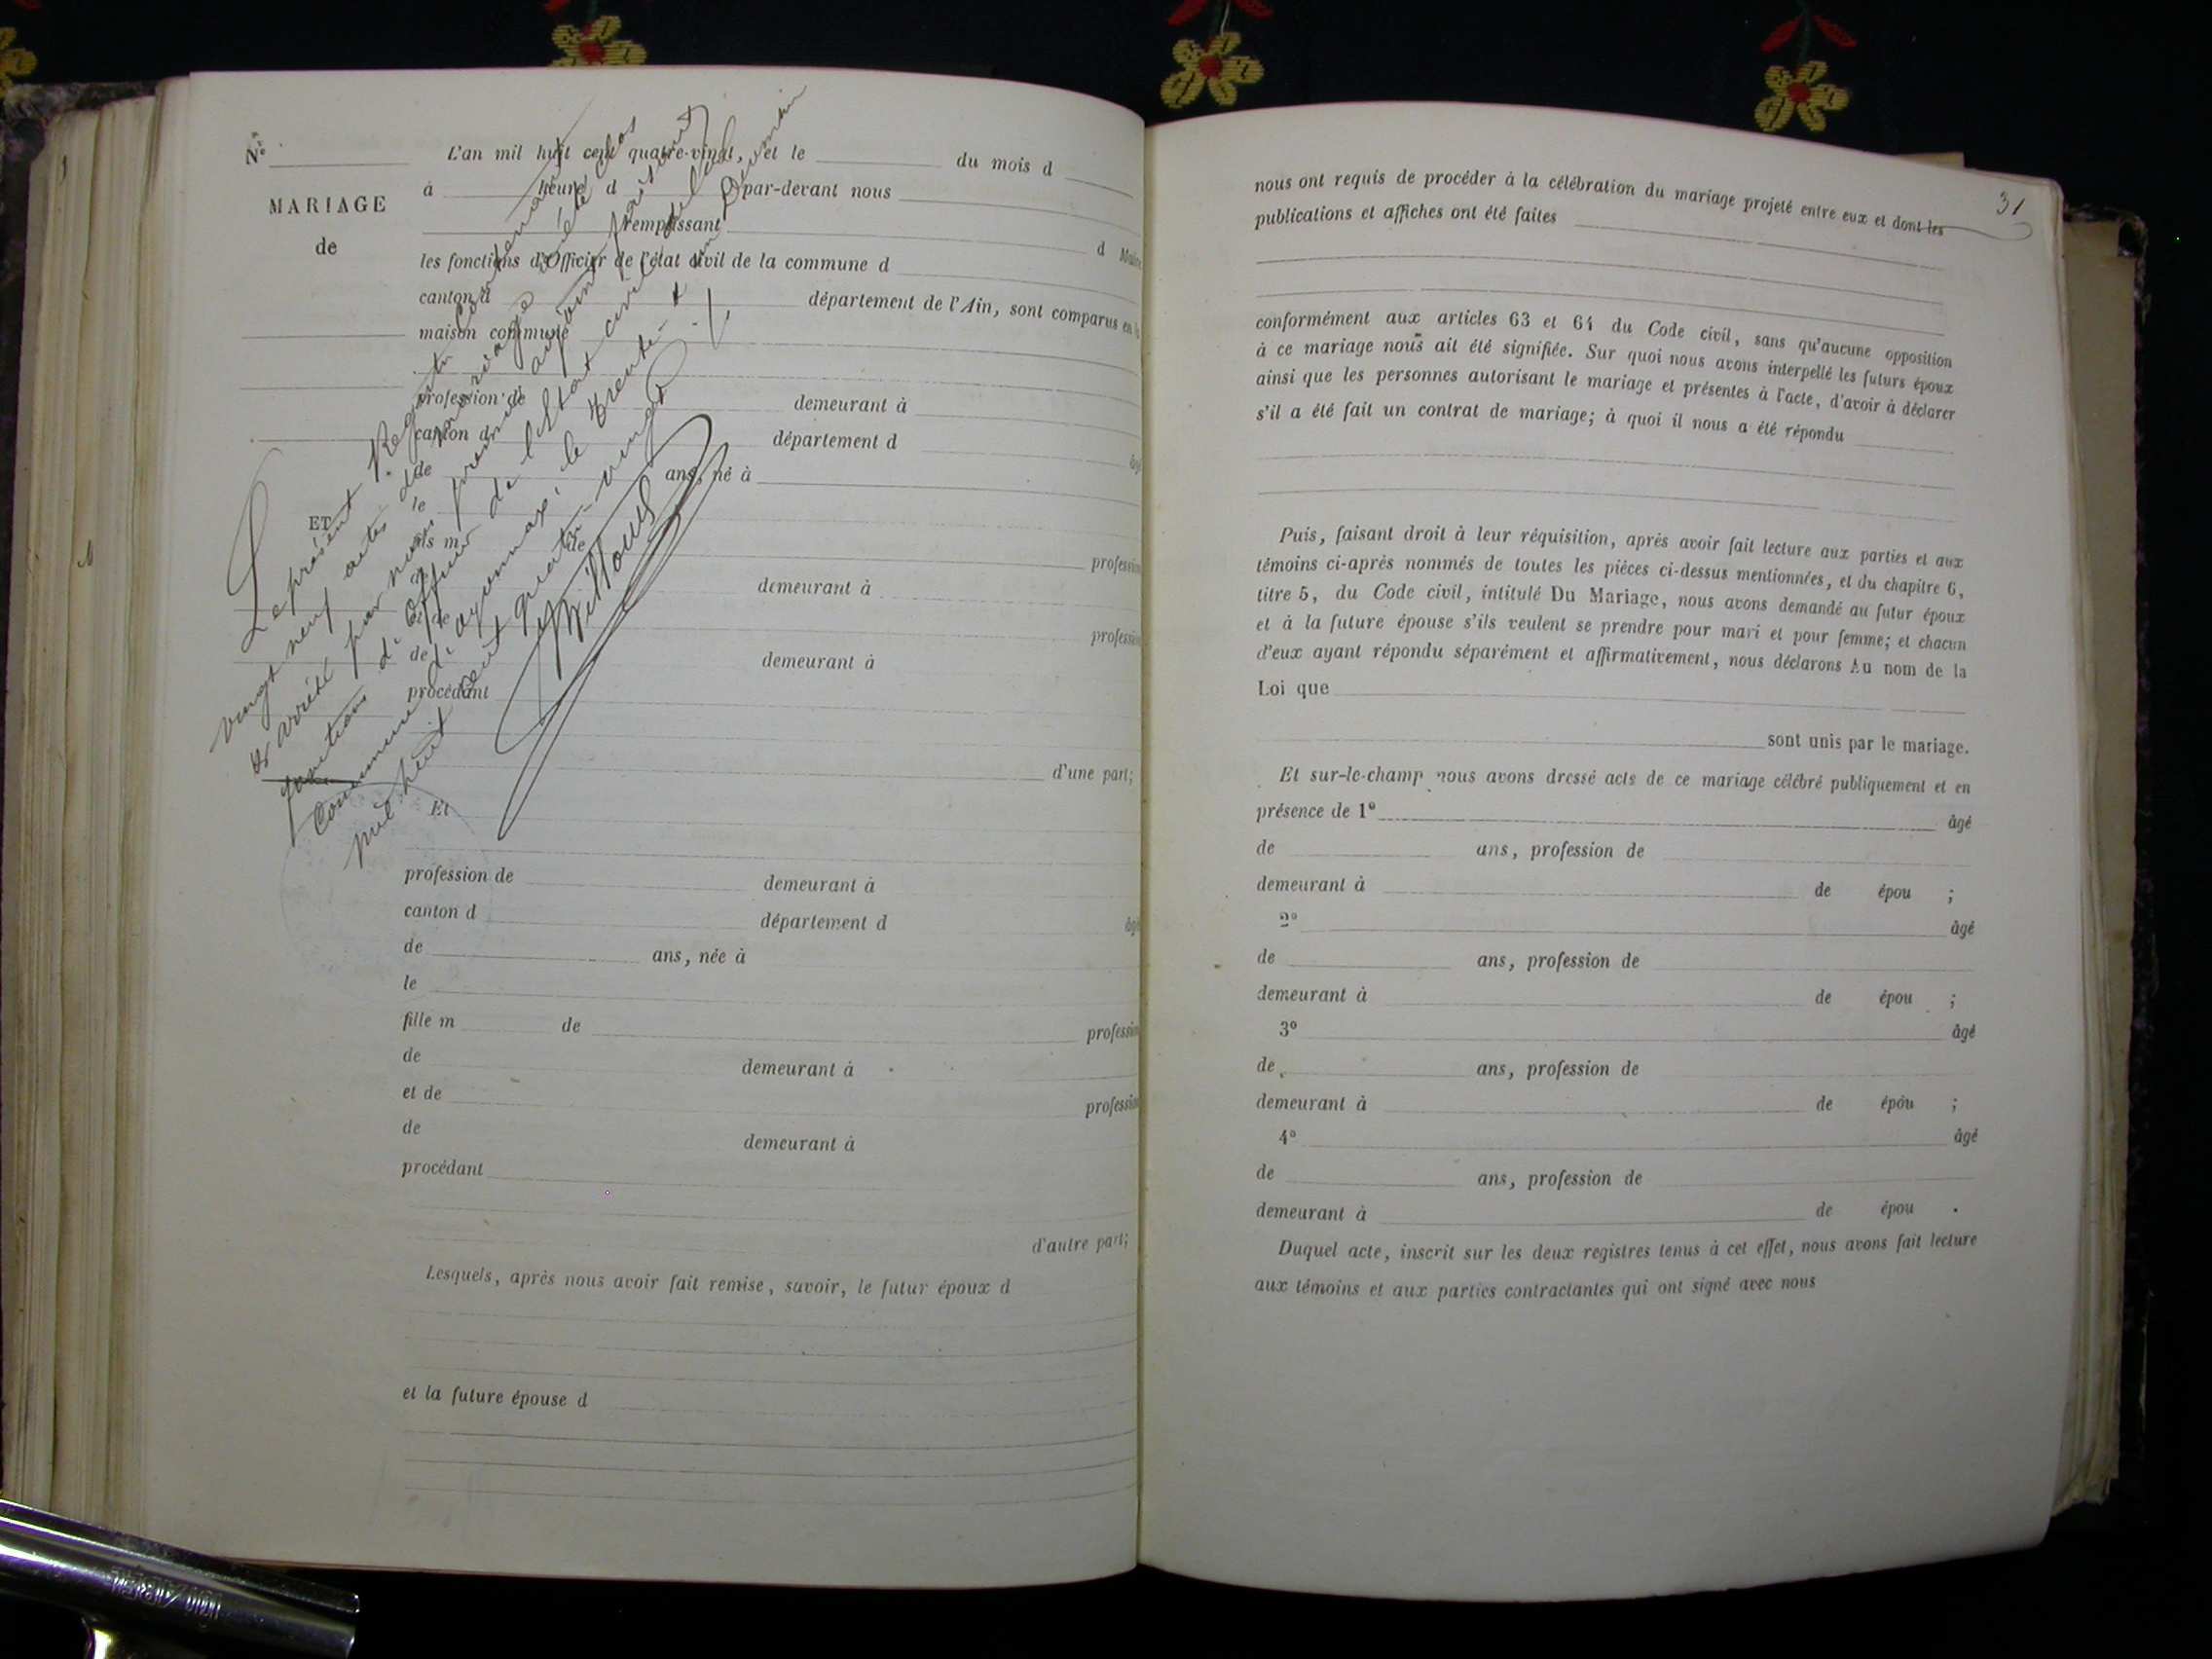 Nº
MARIAGE
de
ET
L'an mil huit cent quatre-vingt, et le du mois d
à heure d par-devant nous
remplissant
d Maire
les fonctions d'Officier de l'état civil de la commune d
canton d département de l'Ain, sont comparus en la
maison commune
profession de demeurant à
canton d département d âgé
de ans, né à
le
fils m de
profession
de demeurant à
et de profession
de demeurant à
procédant
d'une part;
Et
profession de demeurant à
canton d département d âgé
de ans, née à
le
fille m de profession
de demeurant à
et de profession
de demeurant à
procédant
d'autre part;
Lesquels, après nous avoir fait remise, savoir, le futur époux d
et la future épouse d
Le présent Registre contenant
vingt neuf actes de mariage a été clos
& arrêté par nous premier adjoint faisant
fonctions d'officier de l'Etat civil de la
Commune d' le trente & un
mil huit cent quatre-vingt
31
nous ont requis de procéder à la célébration du mariage projeté entre eux et dont les
publications et affiches ont été faites
conformément aux articles 63 et 64 du Code civil, sans qu'aucune opposition
à ce mariage nous ait été signifiée. Sur quoi nous avons interpellé les futurs époux
ainsi que les personnes autorisant le mariage et présentes à l'acte, d'avoir à déclarer
s'il a été fait un contrat de mariage; à quoi il nous a été répondu
Puis, faisant droit à leur réquisition, après avoir fait lecture aux parties et aux
témoins ci-après nommés de toutes les pièces ci-dessus mentionnées, et du chapitre 6,
titre 5, du Code civil, intitulé Du Mariage, nous avons demandé au futur époux
et à la future épouse s'ils veulent se prendre pour mari et pour femme; et chacun
d'eux ayant répondu séparément et affirmativement, nous déclarons Au nom de la
Loi que
sont unis par le mariage.
Et sur-le-champ nous avons dressé acte de ce mariage célébré publiquement et en
présence de 1º âgé
de ans, profession de
demeurant à de épou ;
2º âgé
de ans, profession de
demeurant à de épou ;
3º âgé
de ans, profession de
demeurant à de épou ;
4º âgé
de ans, profession de
demeurant à de épou .
Duquel acte, inscrit sur les deux registres tenus à cet effet, nous avons fait lecture
aux témoins et aux parties contractantes qui ont signé avec nous